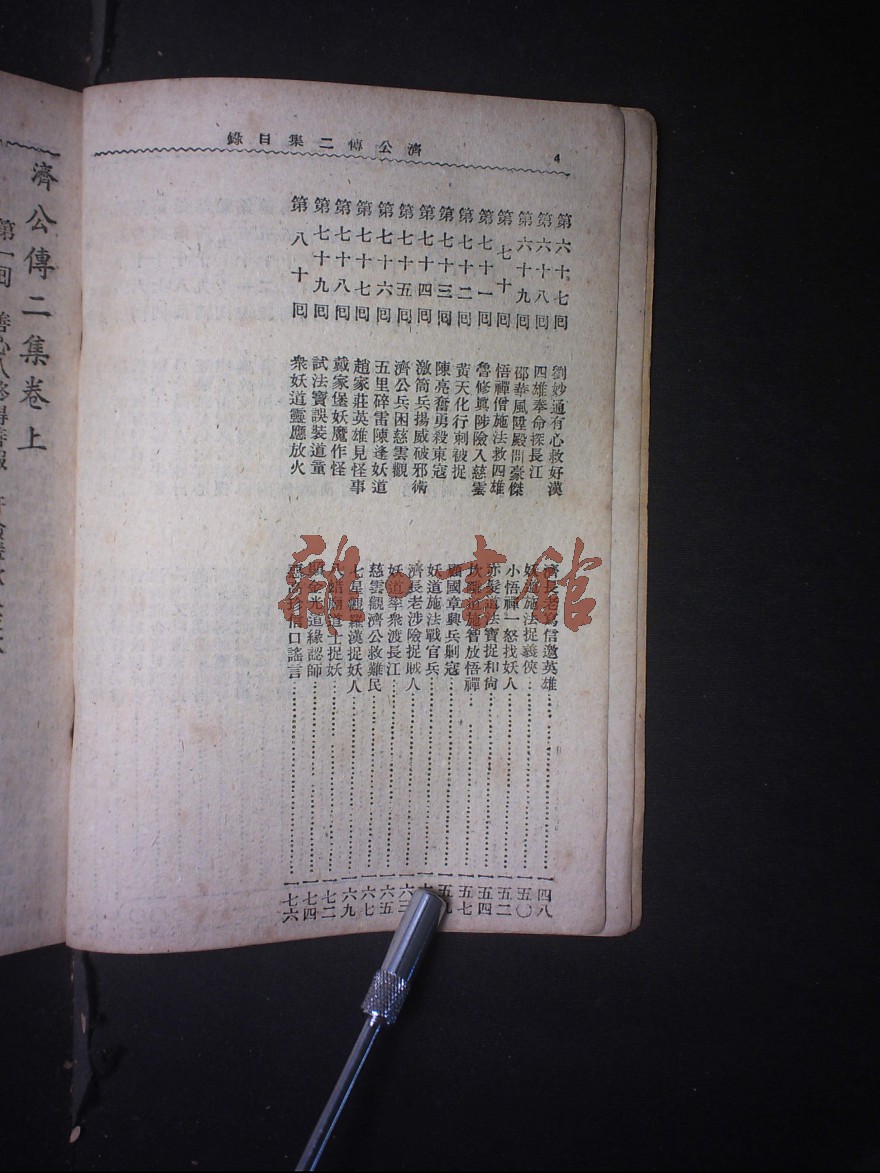 濟公傳二集目錄
4
第六十七回 劉妙通有心救好漢 濟長老寫信邀英雄 一四八
第六十八回 四雄奉命探長江 妖道施法捉義俠 一五〇
第六十九回 邵華風陞殿問豪傑 小悟禪一怒找妖人 一五二
第七十回 悟禪僧施法救四雄 赤髮道法寶捉和尙 一五四
第七十一回 魯修眞涉險入慈雲 智放悟禪 一五七
第七十二回 黃天化行刺被捉 顧國章興兵剿寇
第七十三回 陳亮奮勇殺東寇 妖道施法戰官兵
第七十四回 激筒兵揚威破邪術 濟長老涉險捉賊人 一六三
第七十五回 濟公兵困慈雲觀 妖道率衆渡長江 一六五
第七十六回 五里碑雷陳逢妖道 慈雲觀濟公救難民 一六七
第七十七回 趙家莊英雄見怪事 七星觀羅漢捉妖人 一六九
第七十八回 戴家堡妖魔作怪 八蜡廟道士捉妖 一七二
第七十九回 試法寶誤裝道童 金光道緣認師 一七四
第八十回 衆妖道靈應放火 信口謠言 一七六
濟公傳二集卷上
第一回
雜·書館